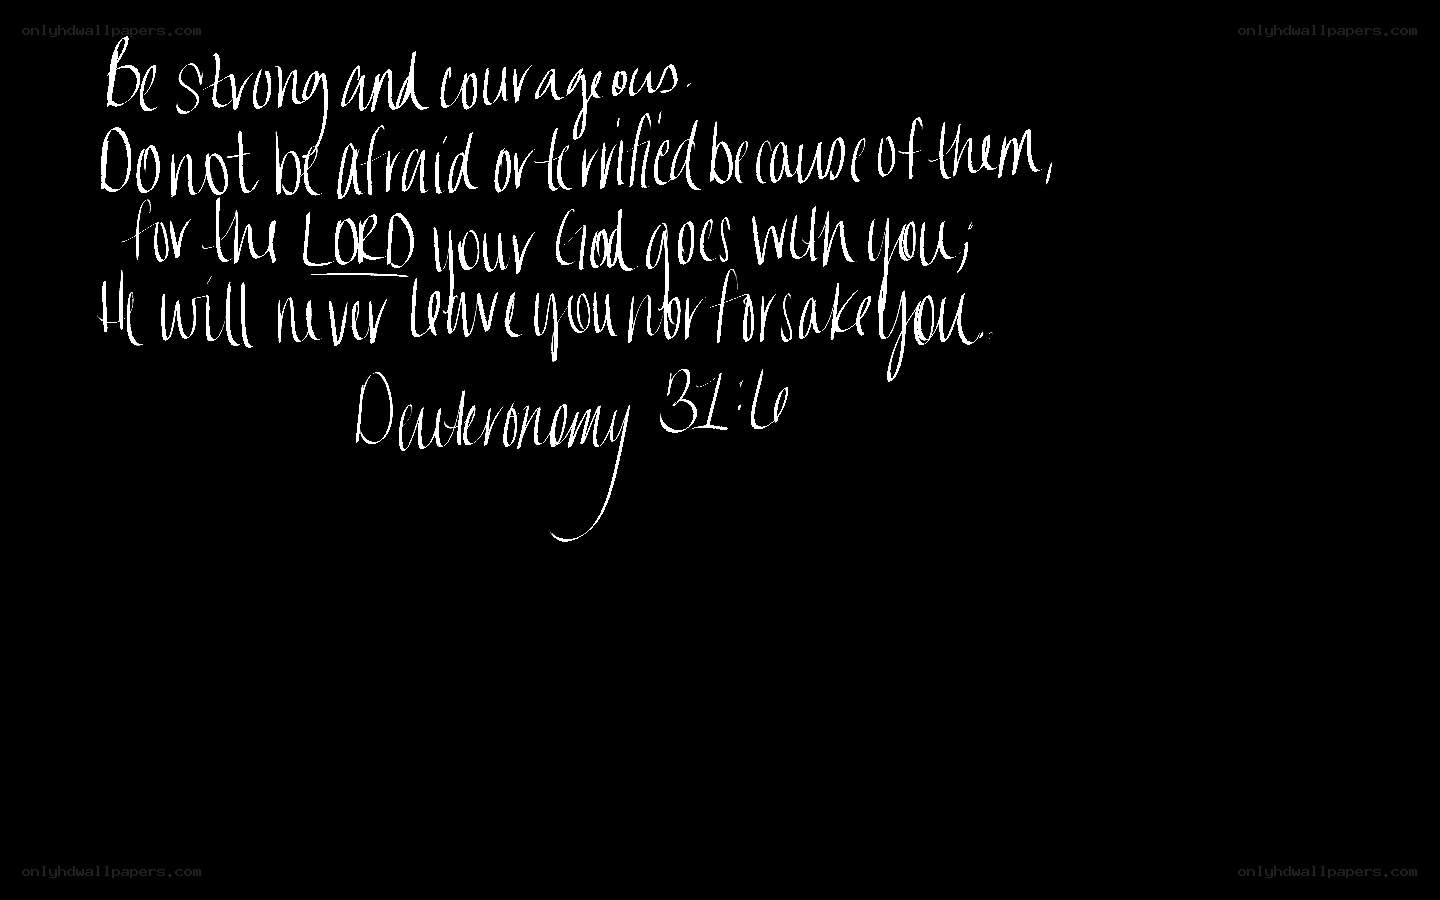 onlyhdwallpapers.com onlyhdwallpapers.com
Be strong and courageous.
Do not be afraid or terrified because of them,
for the LORD your God goes with you;
He will never leave you nor forsake you.
Deuteronomy 31:6
onlyhdwallpapers.com onlyhdwallpapers.com